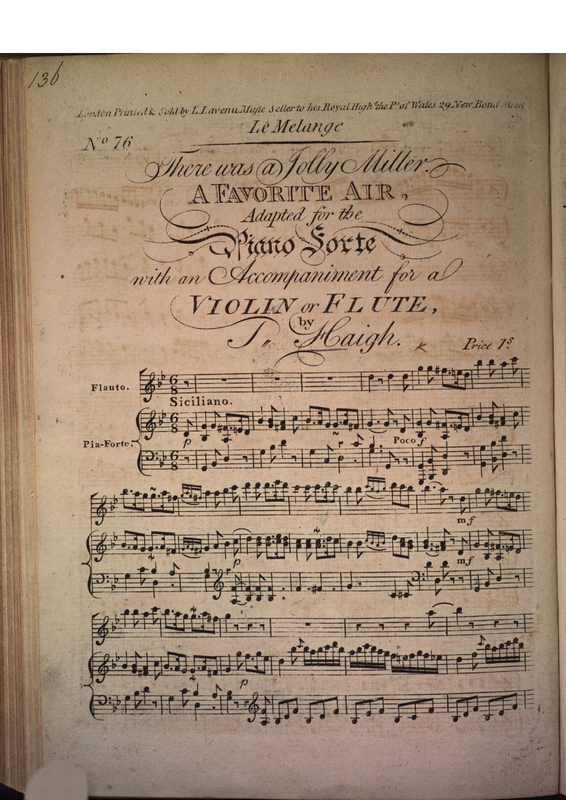 136
London Printed & Sold by L. Lavenu Music Seller to his Royal Highs. the P. of Wales 29 New Bond Street
Le Melange
No 76
There was a Jolly Miller.
A FAVORITE AIR,
Adapted for the
Piano Forte
with an Accompaniment for a
VIOLIN or FLUTE,
by
T. Haigh.
Price 1s
Flauto.
Siciliano.
Pia-Forte.
p
Poco f
mf
p
mf
p